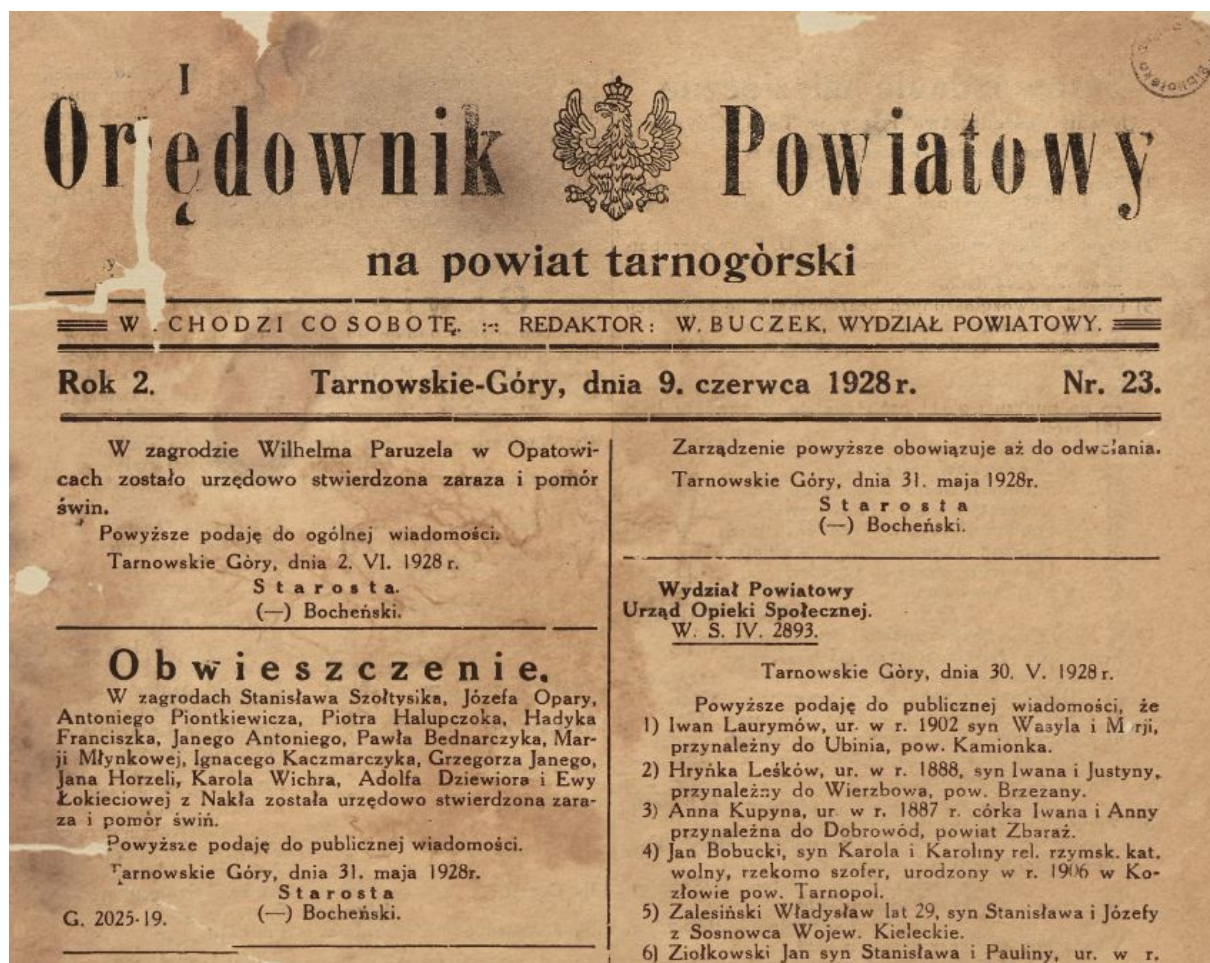 I
Orędownik Powiatowy
na powiat tarnogòrski
W CHODZI CO SOBOTĘ. :-: REDAKTOR: W. BUCZEK, WYDZIAŁ POWIATOWY.
Rok 2. Tarnowskie-Góry, dnia 9. czerwca 1928 r. Nr. 23.
W zagrodzie Wilhelma Paruzela w Opatowi-
cach zostało urzędowo stwierdzona zaraza i pomór
świn.
Powyższe podaję do ogólnej wiadomości.
Tarnowskie Góry, dnia 2. VI. 1928 r.
Starosta.
(—) Bocheński.
Obwieszczenie.
W zagrodach Stanisława Szołtysika, Józefa Opary,
Antoniego Piontkiewicza, Piotra Halupczoka, Hadyka
Franciszka, Janego Antoniego, Pawła Bednarczyka, Mar-
ji Młynkowej, Ignacego Kaczmarczyka, Grzegorza Janego,
Jana Horzeli, Karola Wichra, Adolfa Dziewiora i Ewy
Łokieciowej z Nakła została urzędowo stwierdzona zara-
za i pomór świń.
Powyższe podaję do publicznej wiadomości.
Tarnowskie Góry, dnia 31. maja 1928r.
Starosta
G. 2025-19. (—) Bocheński.
Zarządzenie powyższe obowiązuje aż do odwołania.
Tarnowskie Góry, dnia 31. maja 1928r.
Starosta
(—) Bocheński.
Wydział Powiatowy
Urząd Opieki Społecznej.
W. S. IV. 2893.
Tarnowskie Góry, dnia 30. V. 1928 r.
Powyższe podaję do publicznej wiadomości, że
1) Iwan Laurymów, ur. w r. 1902 syn Wasyla i Marji,
przynależny do Ubinia, pow. Kamionka.
2) Hryńka Leśków, ur. w r. 1888, syn Iwana i Justyny,
przynależny do Wierzbowa, pow. Brzezany.
3) Anna Kupyna, ur. w r. 1887 r. córka Iwana i Anny
przynależna do Dobrowód, powiat Zbaraż.
4) Jan Bobucki, syn Karola i Karoliny rel. rzymsk. kat.
wolny, rzekomo szofer, urodzony w r. 1906 w Ko-
złowie pow. Tarnopol.
5) Zalesiński Władysław lat 29, syn Stanisława i Józefy
z Sosnowca Wojew. Kieleckie.
6) Ziołkowski Jan syn Stanisława i Pauliny, ur. w r.